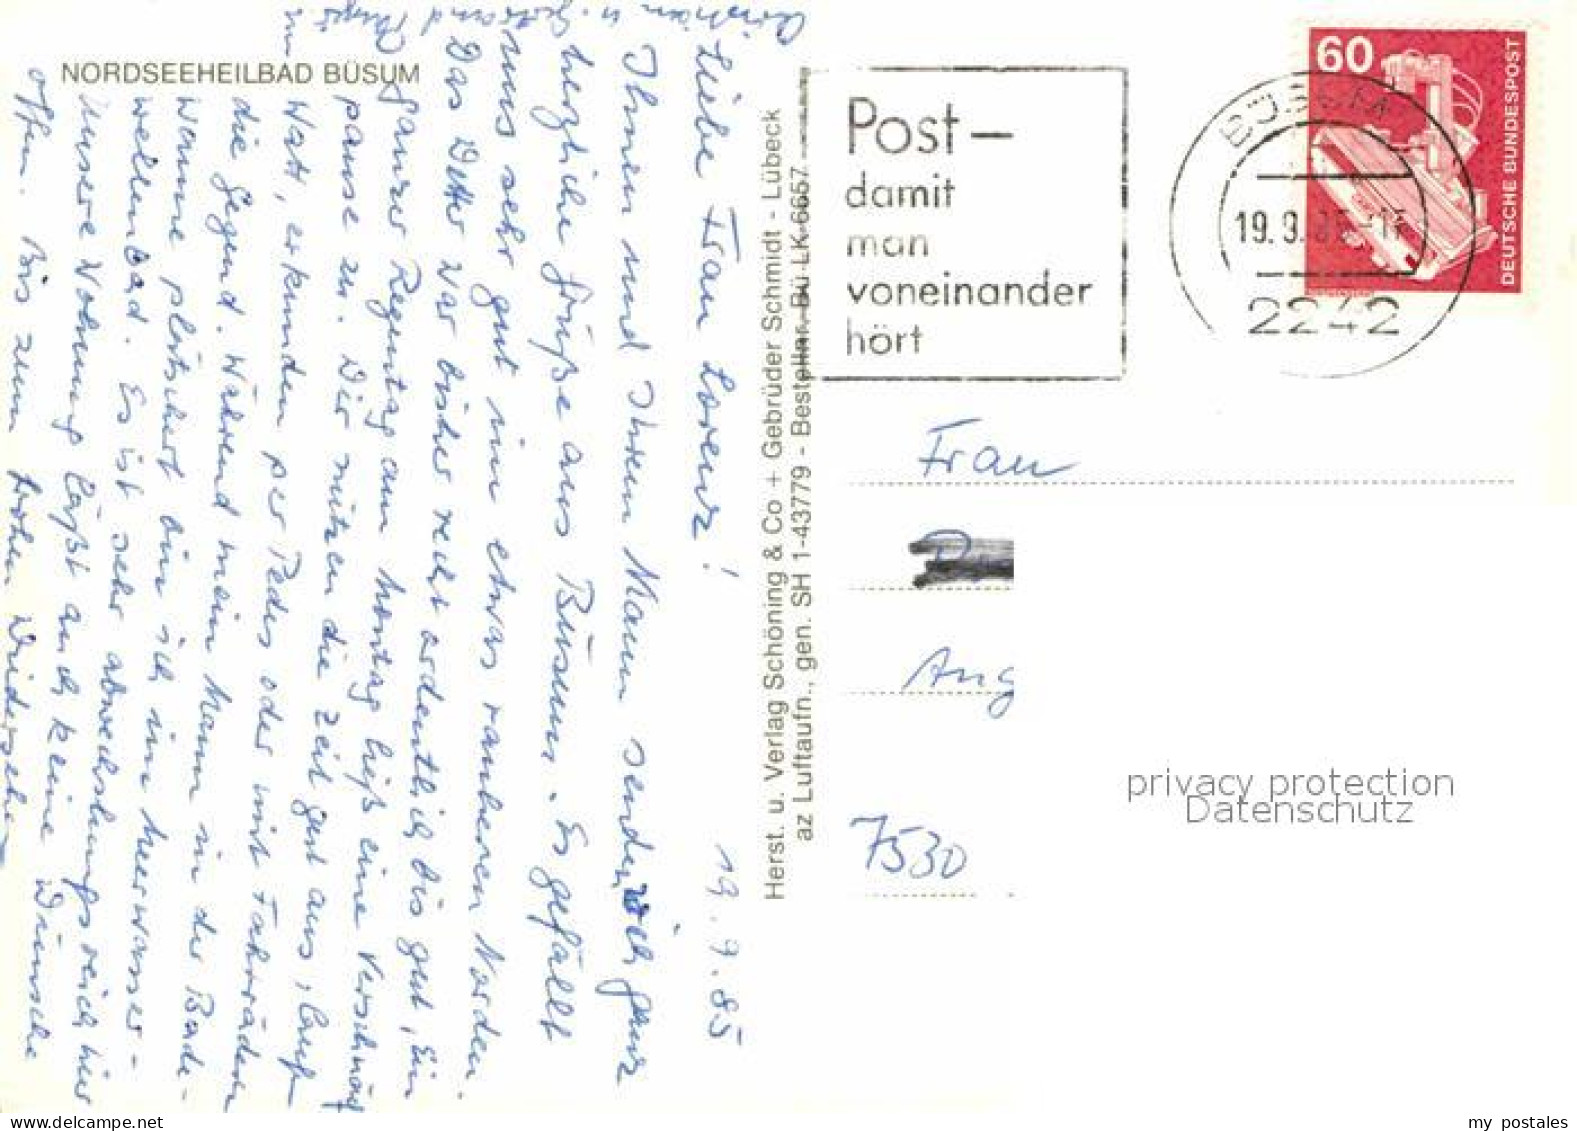 NORDSEEHEILBAD BÜSUM
19.9.85
Liebe Frau Lorenz!
Ihnen und Ihrem Mann senden ich ganz
herzliche Grüße aus Büsum. Es gefällt
uns sehr gut im etwas rauheren Norden.
Das Wetter war bisher recht ordentlich bis gut, Ein
ganzer Regentag am Montag ließ eine Verschnauf
pause zu. Wir nützen die Zeit gut aus, lauf
Watt, erkunden per Pedes oder mit Fahrrädern
die Gegend. Während mein Mann in der Bade-
wanne plätschert bin ich im Meerwasser-
wellenbad. Es ist sehr abwechslungsreich hier
Unsere Wohnung läßt auch keine Wünsche
offen. Bis zum frohen Wiedersehen
Herst. u. Verlag Schöning & Co + Gebrüder Schmidt - Lübeck
az Luftaufn., gen. SH 1-43779 - Bestellnr. Bü LK 6657
Post-
damit
man
voneinander
hört
BÜSUM
19.9.85
2242
60
DEUTSCHE BUNDESPOST
Frau
Ang
7530
privacy protection
Datenschutz
my postales